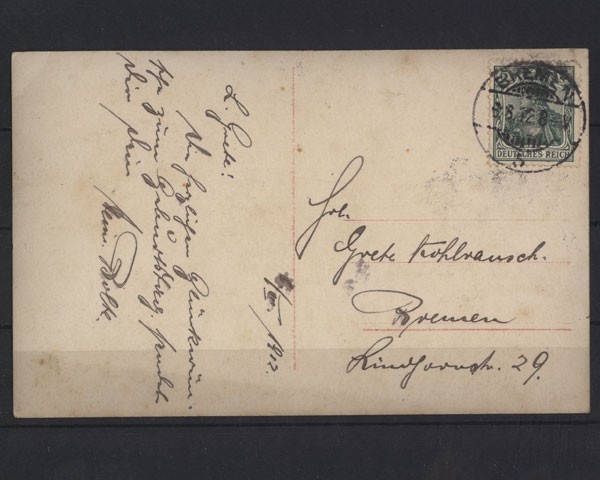 L. Grete!
Die herzlichsten Glückwün-
sche zum Geburtstag sendet
Dir Dein
Bremen
DEUTSCHES REICH
Frl.
Grete Kohlrausch.
Bremen
Lindhornstr. 29.